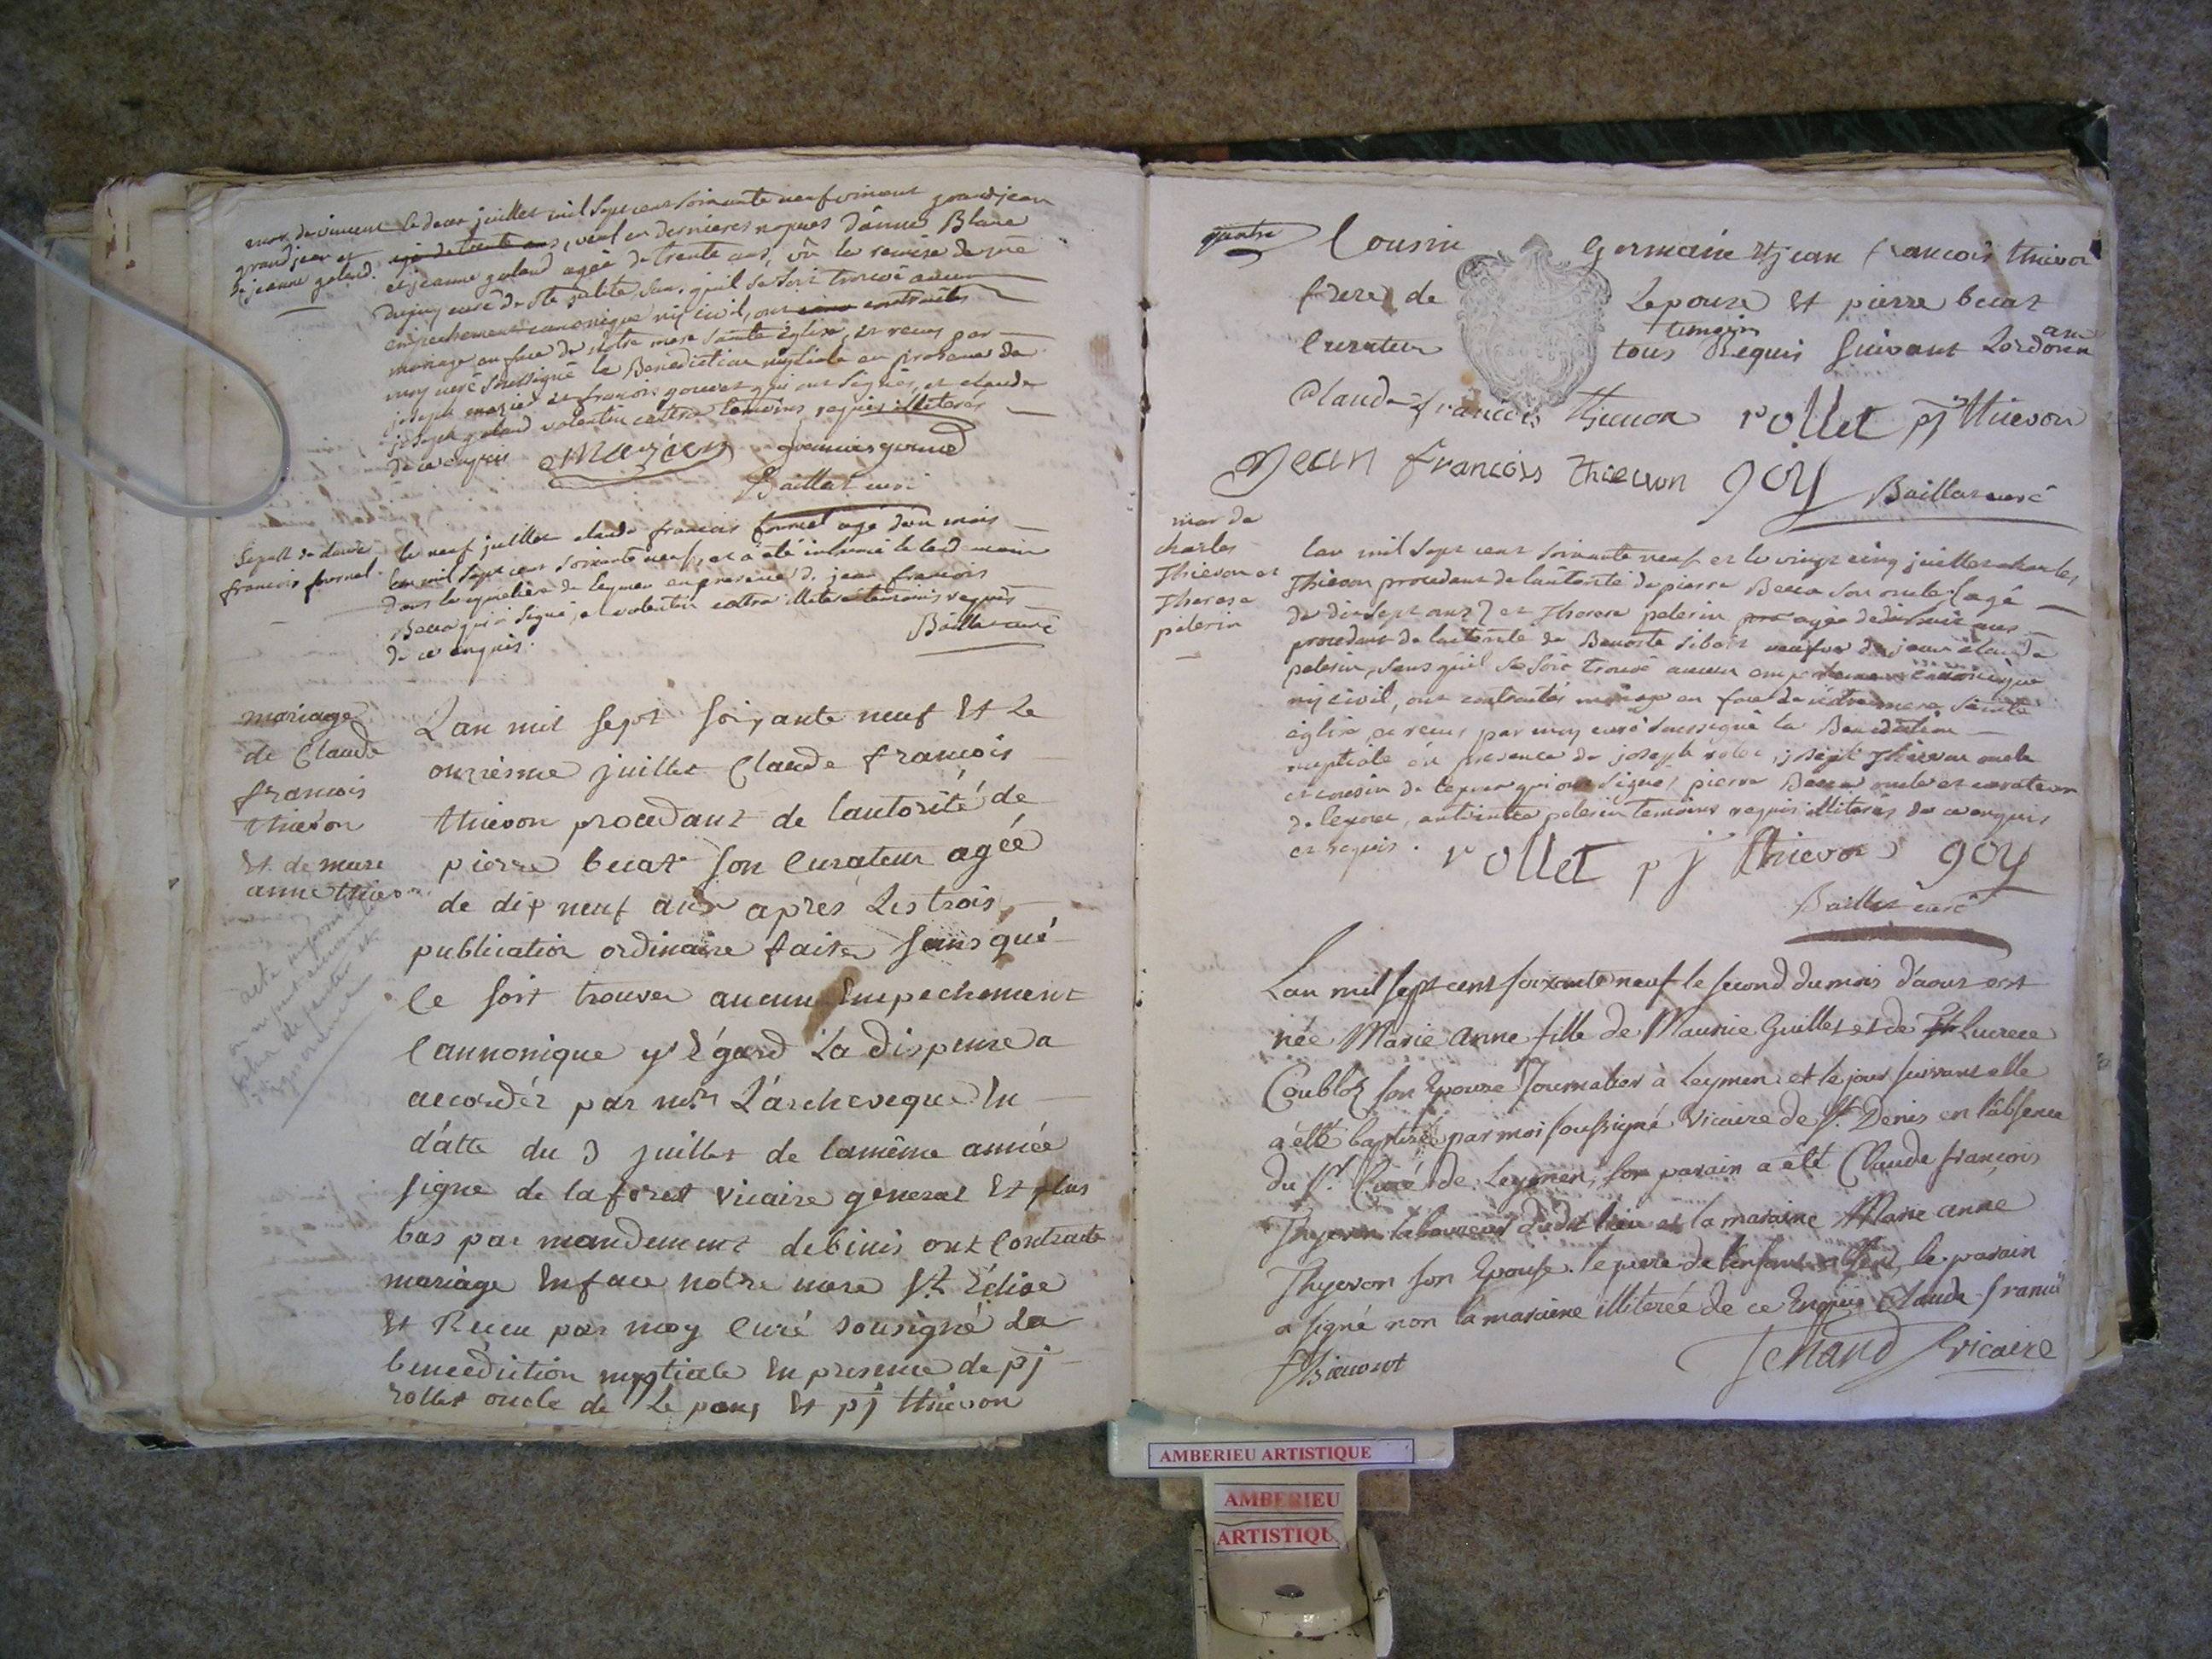 mar. de vincent
grandjean et
de jeanne goland.
le deux juillet mil sept cent soixante neuf vincent grandjean
agé de trente ans, veuf en dernieres nopces d'anne Blanc
et jeanne goland agée de trente ans, vû la remise de mre
curé de ste julite, sans qu'il se soit trouvé aucun
empechement canonique ny civil, ont contractés
mariage en face de notre mere sainte église, et reçus par
moy curé soussigné la Benediction nuptiale en presence de
joseph mazier et françois gouvet qui ont signés, et claude
joseph goland valentin cottra temoins requis illiterés
de ce enquis
Baillat curé
Sepult. de claude
francois fournel.
le neuf juillet claude francois fournel agé d'un mois
l'an mil sept cent soixante neuf, et a été inhumé le lend.main
dans le cymetiere de leymen en presence de jean francois
Becca qui a signé, et valentin cottra illiteré temoins requis
de ce enquis.
Baillat curé
mariage
de Claude
francois
thievon
Et de marie
anne thievon
Lan mil sept soixante neuf Et Le
onzziesme juillet Claude francois
thievon procedant de lautorité de
pierre becat son Curateur agée
de dix neuf ans apres Les trois
publication ordinaire faite sans qué
ce soit trouver aucun Empechement
Cannonique y Légard La dispense a
accordér par mgr L'archeveque En
d'atte du 3 juillet de lamême année
signe de laforest vicaire general Et plus
bas par mandement debinis ont Contracte
mariage En face notre mere Ste Eglise
Et Recu par moy Curé sousigné La
benedition nuptiale En presence de pj
rollet oncle de Lepoux Et pj thievon
Cousin Germain Et jean francois thievon
frere de Lepouze Et pierre becat
Curateur tous temoins Requis suivant Lordonnance
Claude-francois thievon rollet pj thievon
Jean francois thievon goy Baillat curé
mar de
charles
Thievon et
Therese
pelerin
lan mil sept cent soixante neuf et le vingt cinq juillet charles
Thievon procedant de l'autorité de pierre Becca son oncle (agé
de dixsept ans) et Therese pelerin agée de dixhuit ans
procedant de lautorité de Benoite sibert veufve de jean claude
pelerin, sans qu'il se soit trouvé aucun empechement canonique
ny civil, ont contractés mariage en face de nôtre mere sainte
église et reçus par moy curé soussigné la Benediction
nuptiale en presence de joseph rolet, joseph Thievon oncle
et cousin de l'epoux qui ont signé, pierre Becca oncle et curateur
de lepoux, antoine pelerin temoins requis illiterés de ce enquis
et requis.
rollet pj thievon goy
Baillat curé
Lan mil sept cent soixante neuf le second du mois d'aout est
née Marie Anne fille de Maurice Guillet et de Lucrece
Coubloz son Epouse Journalier à Leymen et le jour suivant elle
a été baptisée par moi soussigné Vicaire de St. Denis en l'absence
du Sr. Curé de Leymen, son parain a été Claude françois
Thyevon laboureur dudit lieu et la maraine Marie anne
Thyevon son Epouse. le pere de l'enfant absent, le parain
a signé non la maraine illiterée de ce Enquis Claude-francoi
Thievont
Tenand Vicaire
AMBERIEU ARTISTIQUE
AMBERIEU
ARTISTIQU